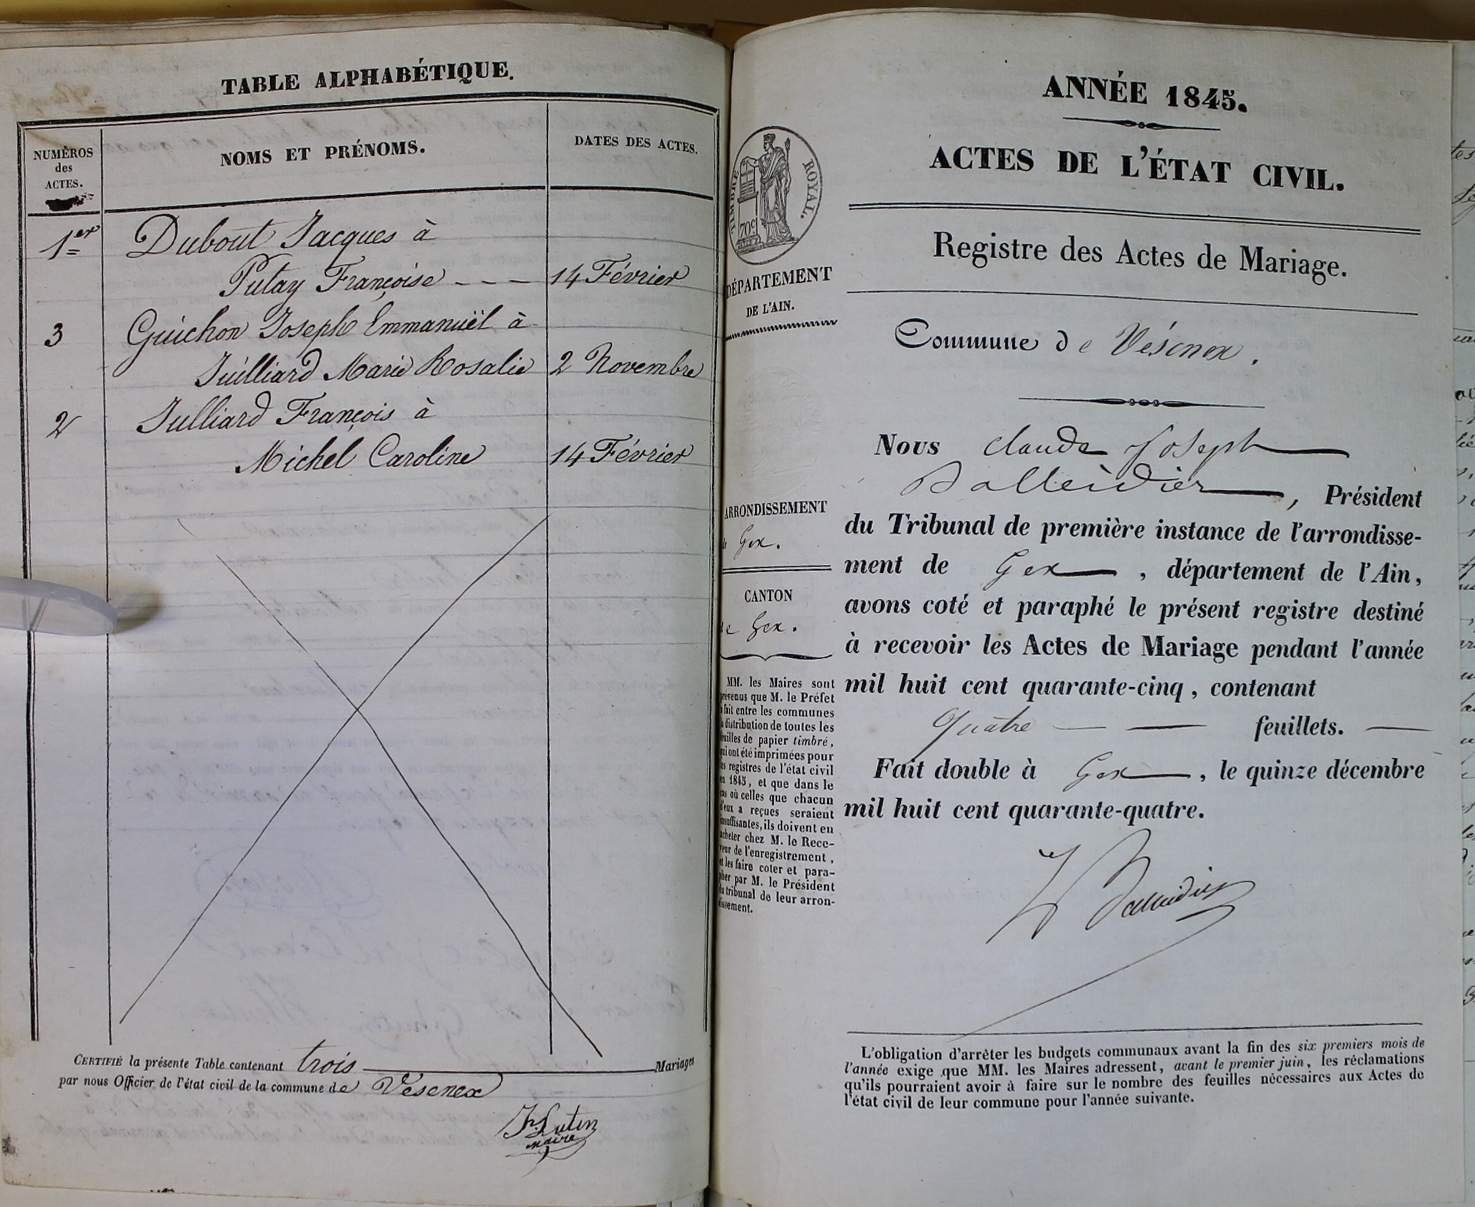 TABLE ALPHABÉTIQUE.
NUMÉROS
des
ACTES.
NOMS ET PRÉNOMS.
DATES DES ACTES.
1er Dubout Jacques à
Putay Françoise - - - 14 Février
3 Guichon Joseph Emmanuël à
Juilliard Marie Rosalie 2 Novembre
2 Julliard François à
Michel Caroline 14 Février
CERTIFIÉ la présente Table contenant trois Mariages
par nous Officier de l'état civil de la commune de Vésenex
maire
ANNÉE 1845.
ACTES DE L'ÉTAT CIVIL.
Registre des Actes de Mariage.
Commune de Vésenex.
TIMBRE ROYAL.
70c
DÉPARTEMENT
DE L'AIN.
ARRONDISSEMENT
Gex.
CANTON
de Gex.
MM. les Maires sont
prévenus que M. le Préfet
a fait entre les communes
la distribution de toutes les
feuilles de papier timbré,
qui ont été imprimées pour
les registres de l'état civil
en 1845, et que dans le
cas où celles que chacun
d'eux a reçues seraient
insuffisantes, ils doivent en
acheter chez M. le Rece-
veur de l'enregistrement,
et les faire coter et para-
pher par M. le Président
du tribunal de leur arron-
dissement.
Nous Claude Joseph
Balleidier, Président
du Tribunal de première instance de l'arrondisse-
ment de Gex, département de l'Ain,
avons coté et paraphé le présent registre destiné
à recevoir les Actes de Mariage pendant l'année
mil huit cent quarante-cinq, contenant
quatre feuillets.
Fait double à Gex, le quinze décembre
mil huit cent quarante-quatre.
Balleidier
L'obligation d'arrêter les budgets communaux avant la fin des six premiers mois de
l'année exige que MM. les Maires adressent, avant le premier juin, les réclamations
qu'ils pourraient avoir à faire sur le nombre des feuilles nécessaires aux Actes de
l'état civil de leur commune pour l'année suivante.